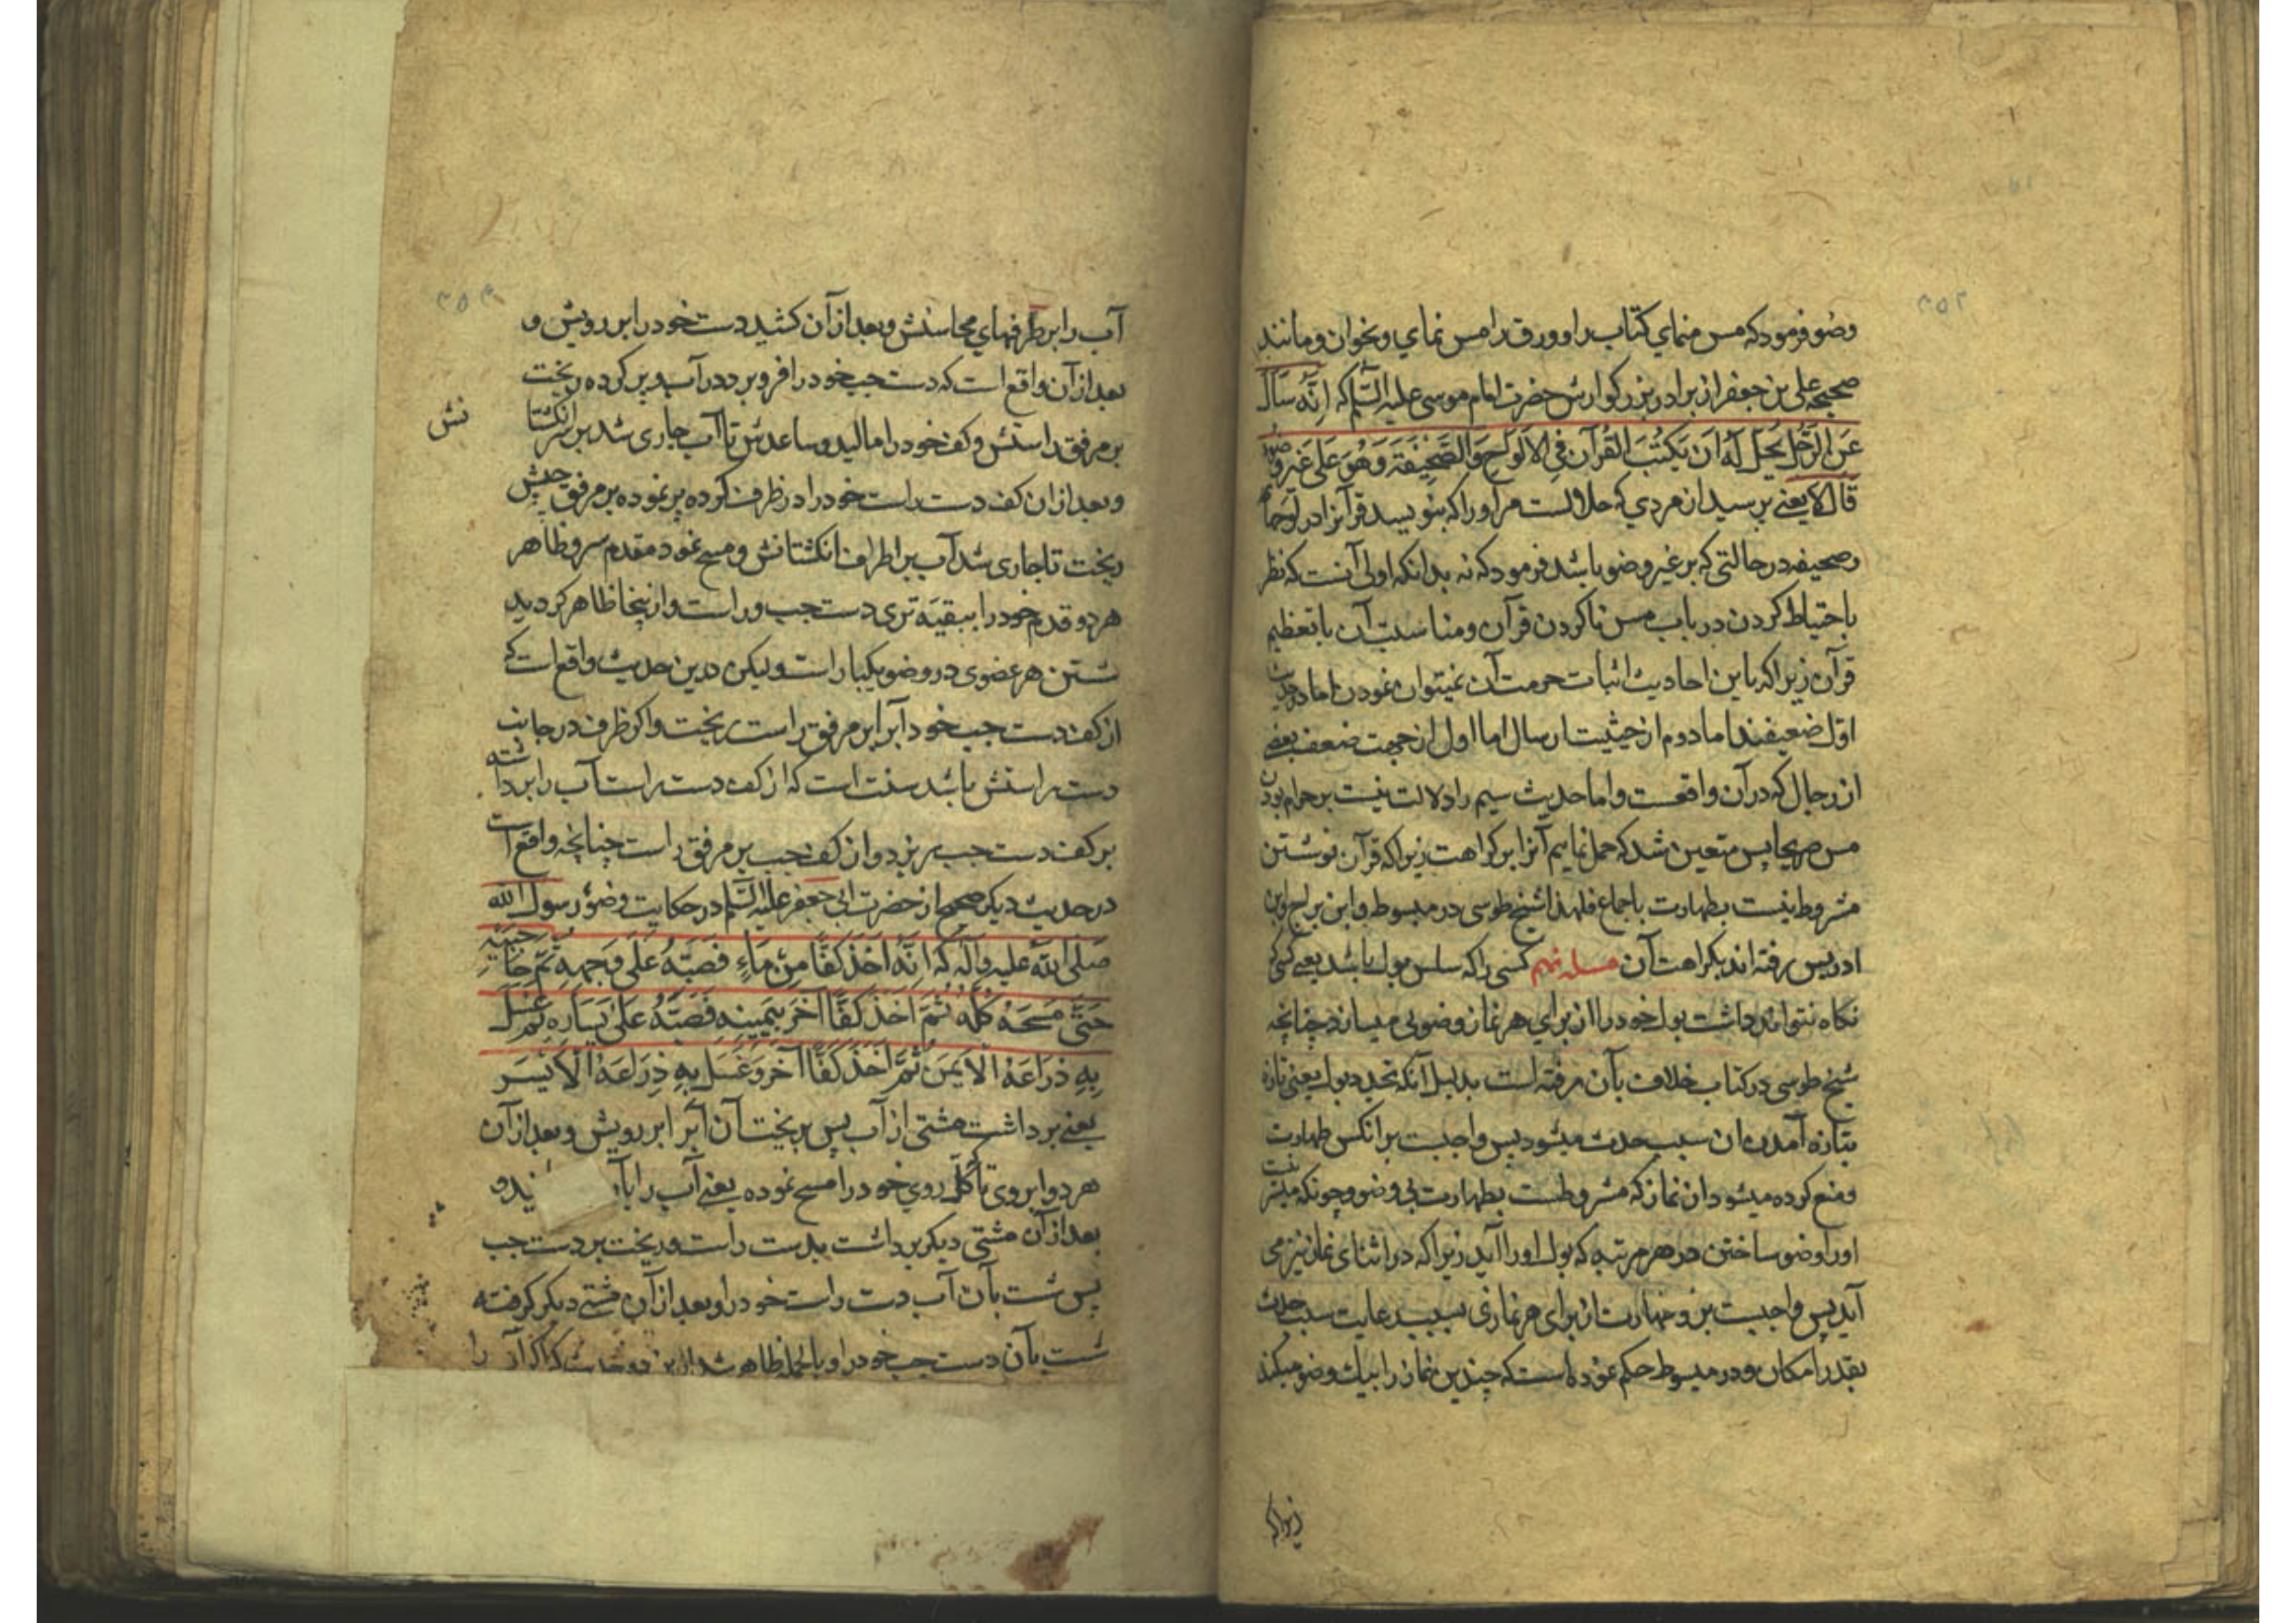 ۲۵۲
وضو فرمود که مس منمای کتاب را و ورق را مس نمای و بخوان و مانند
صحیحه علی بن جعفر از برادر بزرگوارش حضرت امام موسی علیه السلام که اِنَّهُ سَأَلَ
عَنِ الرَّجُلِ یَحِلُّ لَهُ اَن یَکتُبَ القُرآنَ فِی الاَلواحِ وَالصَّحِیفَةِ وَهُوَ عَلی غَیرِ وُضوءٍ
قالَ لا یعنے پرسید از مردی که حلالست مر او را که بنویسد قرآنرا در لوحها
و صحیفه در حالتی که بر غیر وضو باشد فرمود که نه بدانکه اولی آنست که نظر
باحتیاط کردن در باب مس ناکردن قرآن و مناسبت آن با تعظیم
قرآن زیرا که باین احادیث اثبات حرمت آن نمیتوان نمودن اما دو حدیث
اوّل ضعیفند اما دوم از حیثیت ارسال اما اول از جهت ضعف بعضے
از رجال که در آن واقعست و اما حدیث سیم را دلالت نیست بر حرام بودن
مس صریحا پس متعین شد که حمل نماییم آنرا بر کراهت زیرا که قرآن نوشتن
مشروط نیست بطهارت باجماع فلهذا شیخ طوسی در مبسوط و ابن براج و ابن
ادریس رفته اند بکراهت آن مسئله نهم کسی را که سلس بول باشد یعنے کسی که
نگاه نتواند داشت بول خود را از برای هر نماز وضویی میسازد چنانچه
شیخ طوسی در کتاب خلاف بآن رفته است بدلیل آنکه تجدید بول یعنی تازه
بتازه آمدن آن سبب حدث میشود پس واجبست بر آنکس طهارت
و منع کرده میشود از نماز که مشروطست بطهارت بی وضو و چونکه میسّر نیست
او را وضو ساختن در هر مرتبه که بول او را آید زیرا که در اثنای نماز نیز می
آید پس واجبست بر او طهارت از برای هر نمازی بسبب رعایت سبب حدث
بقدر امکان و در مبسوط حکم نموده است که چندین نماز را بیک وضو میکند
زیرا که
۲۵۳
آب را بر طرفهای محاسنش و بعد از آن کشید دست خود را بر رویش و
بعد از آن واقع است که دست چپ خود را فرو برد در آب و پر کرده ریخت
بر مرفق راستش و کف خود را مالید و ساعدش تا آب جاری شد بر سر انگشتا
نش
و بعد از آن کف دست راست خود را در ظرف کرده پر نموده بر مرفق چپش
ریخت تا جاری شد آب بر اطراف انگشتانش و مسح نمود مقدم سر و ظاهر
هر دو قدم خود را ببقیّه تری دست چپ و راست و از اینجا ظاهر گردید
شستن هر عضوی در وضو یکبار است و لیکن درین حدیث واقع است که
از کف دست چپ خود آبرا بر مرفق راست ریخت و اگر ظرف در جانب
دست راستش باشد سنت است که از کف دست راست آب را برداشته
بر کف دست چپ بریزد و از کف چپ بر مرفق راست چنانچه واقع است
در حدیث دیگر صحیح از حضرت ابی جعفر علیه السّلام در حکایت وضوء رسول الله
صلی الله علیه وآله که اِنَّهُ اَخَذَ کَفًّا مِن ماءٍ فَصَبَّهُ عَلی وَجهِهِ ثُمَّ جَانِبَیهِ
حَتّی مَسَحَهُ کُلَّهُ ثُمَّ اَخَذَ کَفًّا آخَرَ بِیَمِینِهِ فَصَبَّهُ عَلی یَسارِهِ ثُمَّ غَسَلَ
بِهِ ذِراعَهُ الاَیمَنَ ثُمَّ اَخَذَ کَفًّا آخَرَ وَغَسَلَ بِهِ ذِراعَهُ الاَیسَرَ
یعنے برداشت مشتی از آب پس بریخت آن آبرا بر رویش و بعد از آن
هر دو ابروی تا کُلّ روی خود را مسح نموده یعنے آب را
بعد از آن مشتی دیگر برداشت بدست راست و ریخت بر دست چپ
پس شست بآن آب دست راست خود را و بعد از آن مشتی دیگر گرفته
شست بآن دست چپ خود را و بالجمله ظاهر شد از این دو حدیث که